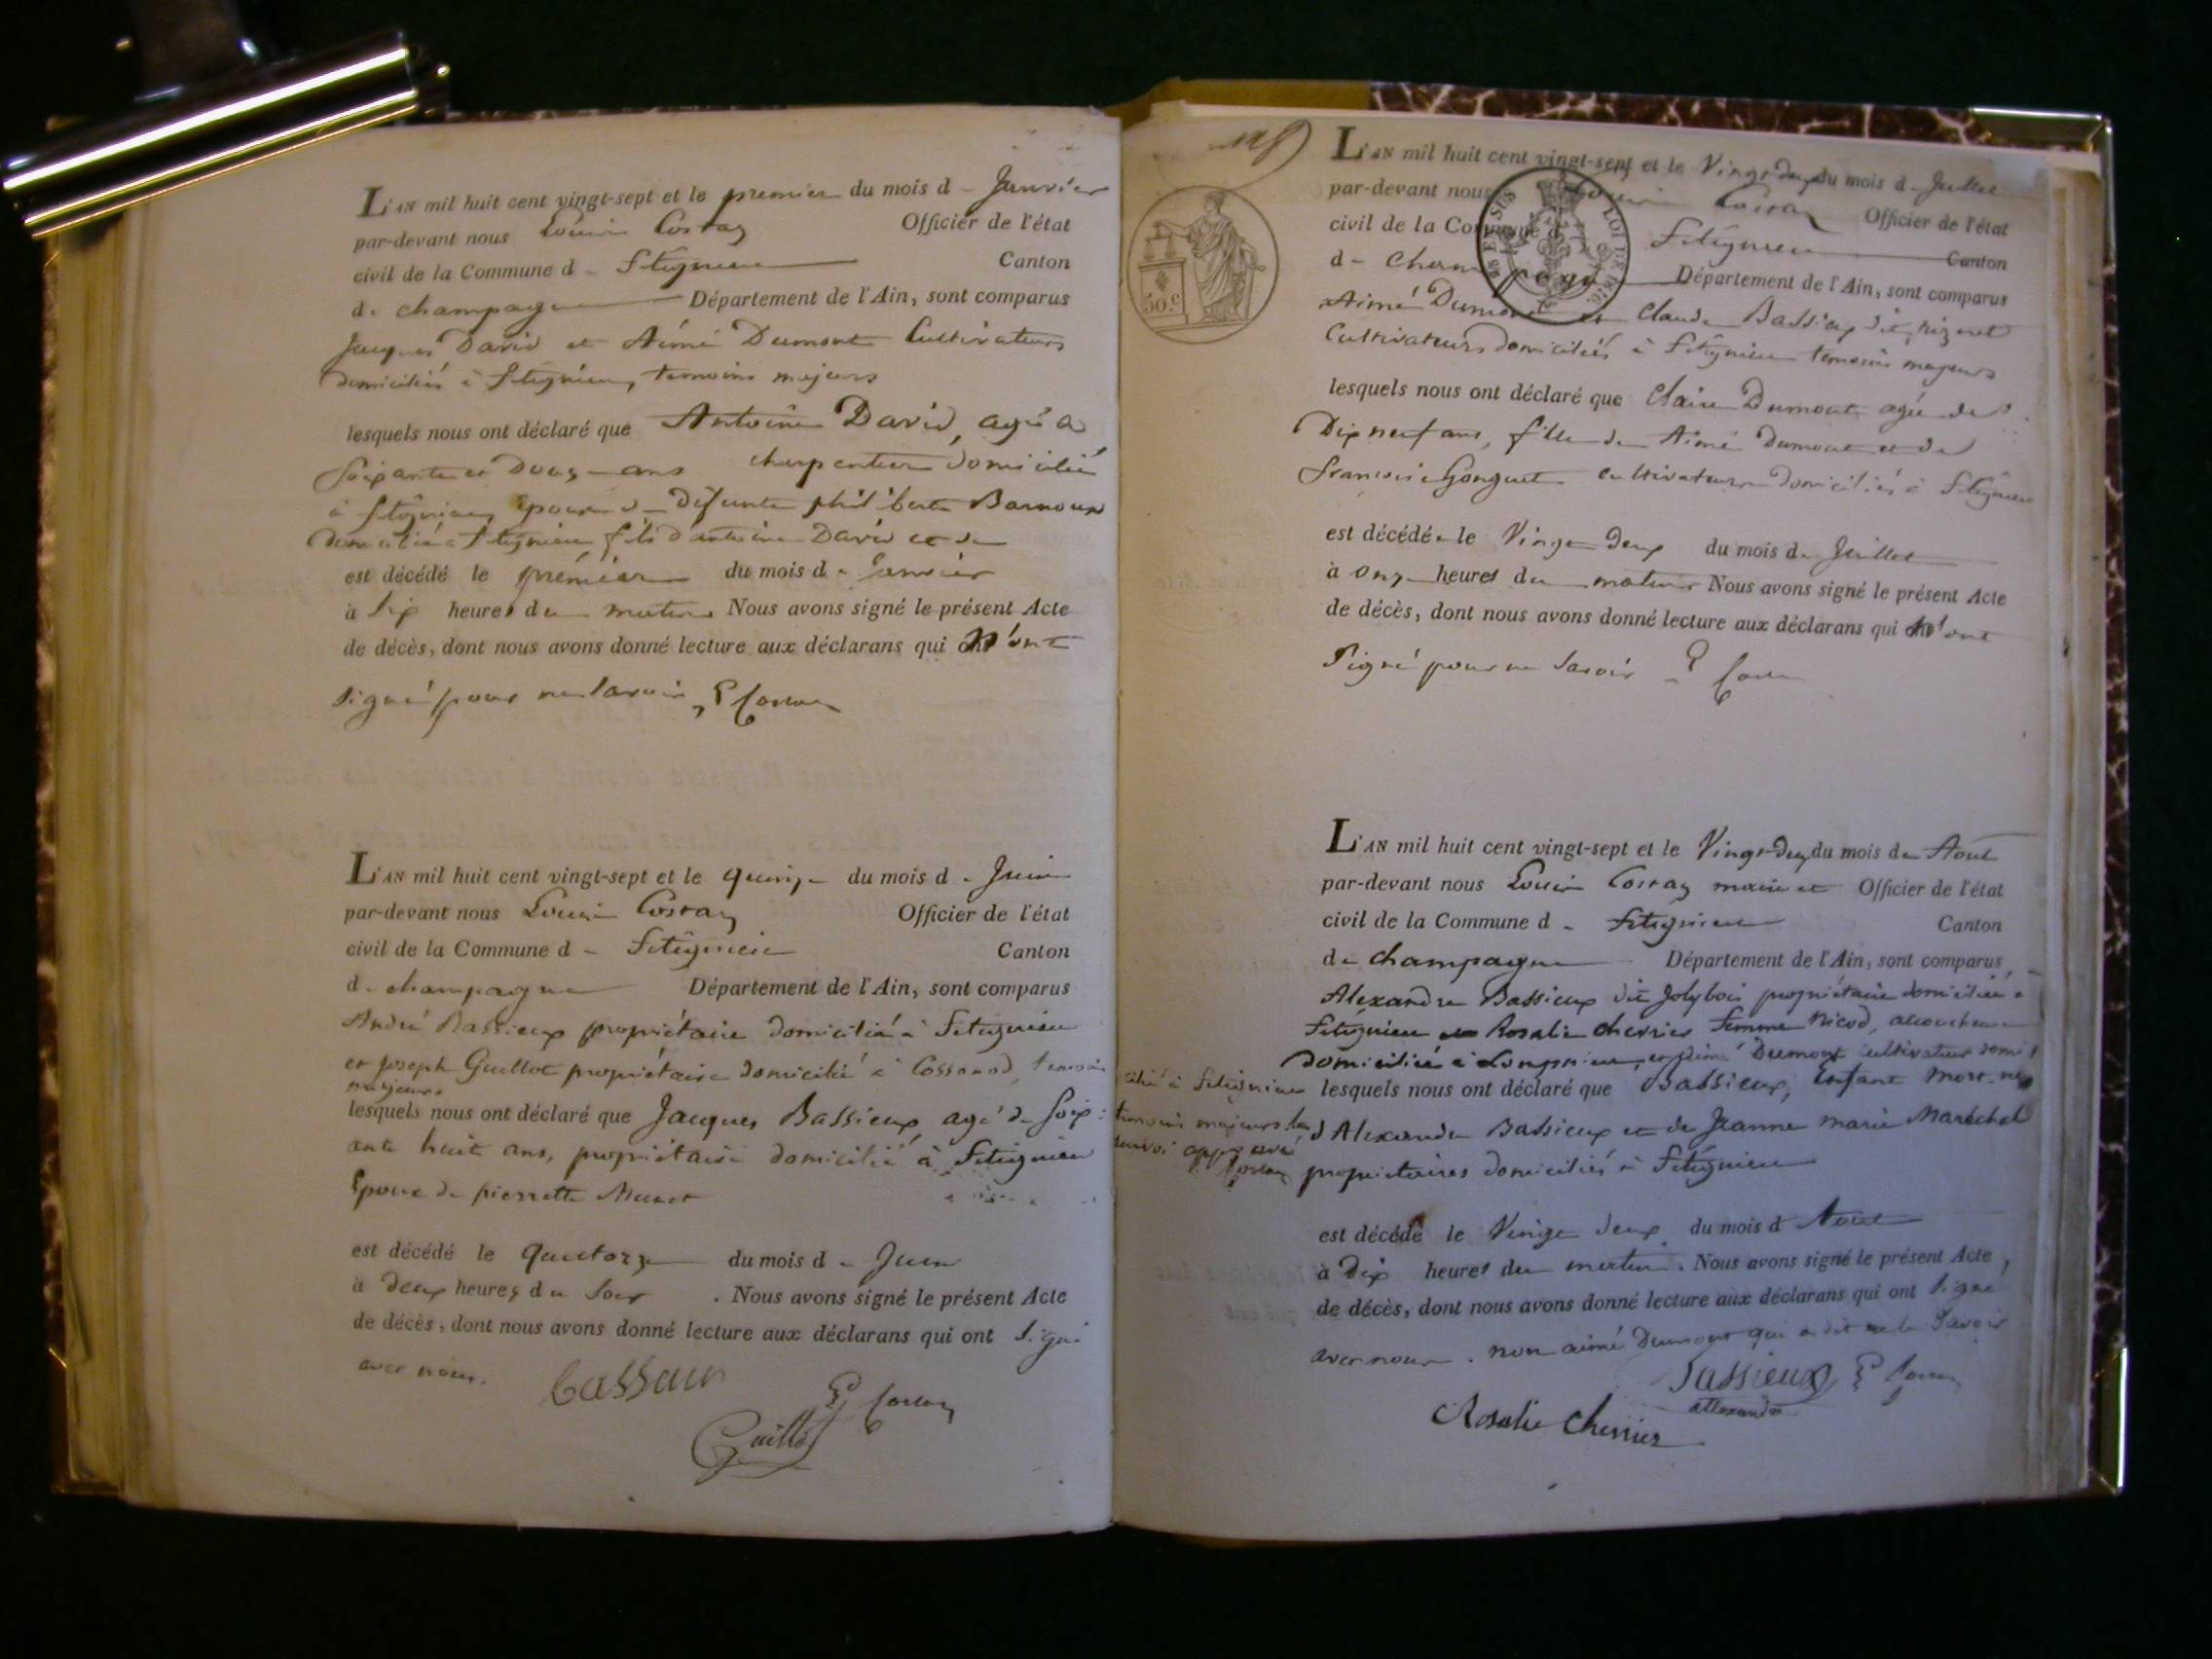 L'AN mil huit cent vingt-sept et le premier du mois d - Janvier
par-devant nous Louis Costaz Officier de l'état
civil de la Commune d - fitignieu Canton
de champagne Département de l'Ain, sont comparus
Jacques David et Aimé Dumont Cultivateurs
domiciliés à fitignieu, temoins majeurs
lesquels nous ont déclaré que Antoine David, agé de
soixante et Douze ans charpentier domicilié
à fitignieu, Epoux de Defunte philiberte Barnoux
domicilié à fitignieu fils d'antoine David et de
est décédé le premier du mois de Janvier
à six heures du matin Nous avons signé le présent Acte
de décès, dont nous avons donné lecture aux déclarans qui n'ont
signé pour ne savoir,
L'AN mil huit cent vingt-sept et le quinze du mois de Juin
par-devant nous Louis Costaz Officier de l'état
civil de la Commune d - fitignieu Canton
de champagne Département de l'Ain, sont comparus
André Bassieux propriétaire domicilié à fitignieu
et joseph Guillot propriétaire domicilié à Cossonod, temoins
majeurs
lesquels nous ont déclaré que Jacques Bassieux agé de soix:
ante huit ans, propriétaire domicilié à fitignieu
Epoux de pierrette Munet
est décédé le quatorze du mois de Juin
à deux heures du soir . Nous avons signé le présent Acte
de décès, dont nous avons donné lecture aux déclarans qui ont signé
avec nous.
Guillot
L'AN mil huit cent vingt-sept et le Vingt Deux du mois de Juillet
par-devant nous Louis Costaz Officier de l'état
civil de la Commune d fitignieu Canton
de Champagne Département de l'Ain, sont comparus
Aimé Dumont et Claude Bassieux dit
Cultivateurs domiciliés à fitignieu temoins majeurs
lesquels nous ont déclaré que Claire Dumont agée de
Dix neuf ans, fille de Aimé Dumont et de
françoise Gonguet cultivateurs domiciliés à fitignieu
est décédée le Vingt Deux du mois de Juillet
à onze heures du matin Nous avons signé le présent Acte
de décès, dont nous avons donné lecture aux déclarans qui n'ont
signé pour ne savoir
50.c
L'AN mil huit cent vingt-sept et le Vingt Deux du mois de Aout
par-devant nous Louis Costaz maire et Officier de l'état
civil de la Commune d - fitignieu Canton
de champagne Département de l'Ain, sont comparus
Alexandre Bassieux dit Jolybois propriétaire domicilié à
fitignieu Rosalie cherrier femme Nicod, accoucheuse
domiciliée à Lompnieu, et aimé Dumont cultivateur domi
cilié à fitignieu lesquels nous ont déclaré que Bassieux, enfant mort-né
temoins majeurs d'Alexandre Bassieux et de Jeanne marie Maréchal
renvoi approuvé
propriétaires domiciliés à fitignieu
est décédé le Vingt deux du mois d'Aout
à Dix heures du matin. Nous avons signé le présent Acte
de décès, dont nous avons donné lecture aux déclarans qui ont signé
avec nous. non aimé Dumont qui a dit ne le savoir
Bassieux
allexandre
Rosalie Cherrier